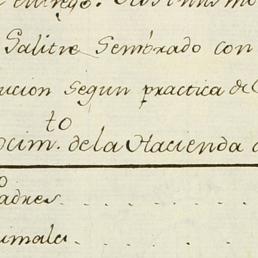 Salitre Sembrado con
ucion Segun practica de
ocim.to de la Hacienda
adres
imale